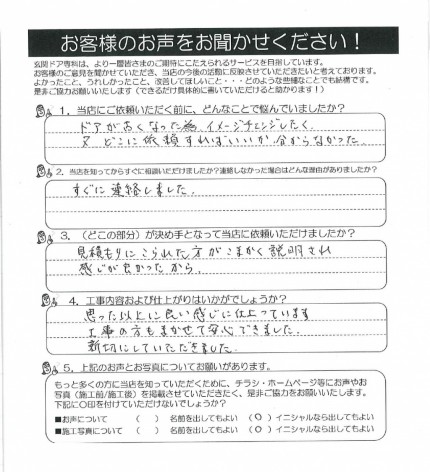 お客様のお声をお聞かせください！
玄関ドア専科は、より一層皆さまのご期待にこたえられるサービスを目指しています。
お客様のご意見を聞かせていただき、当店の今後の活動に反映させていただきたいと考えております。
よかったこと、うれしかったこと、改善してほしいこと・・・どのような些細なことでも結構です。
是非ご協力お願いいします（できるだけ具体的に書いていただけると助かります！）
1．当店にご依頼いただく前に、どんなことで悩んでいましたか？
ドアが古くなった為、イメージチェンジしたく、
又、どこに依頼すればいいか分からなかった
2．当店を知ってからすぐに相談いただけましたか？連絡しなかった場合はどんな理由がありましたか？
すぐに連絡しました。
3．（どこの部分）が決め手となって当店に依頼いただけましたか？
見積もりにこられた方がこまかく説明され
感じが良かったから。
4．工事内容および仕上がりはいかがでしょうか？
思った以上に良い感じに仕上っています
工事の方もまかせて安心できました。
親切にしていただきました。
5．上記のお声とお写真についてお願いがあります。
もっと多くの方に当店を知っていただくために、チラシ・ホームページ等にお声やお
写真（施工前/施工後）を掲載させていただきたく、是非ご協力をお願いいたします。
下記に〇印を付けていただけないでしょうか？
■お声について　（　）　名前を出してもよい　（〇）イニシャルなら出してもよい
■施工写真について　（　）　名前を出してもよい　（〇）イニシャルなら出してもよい